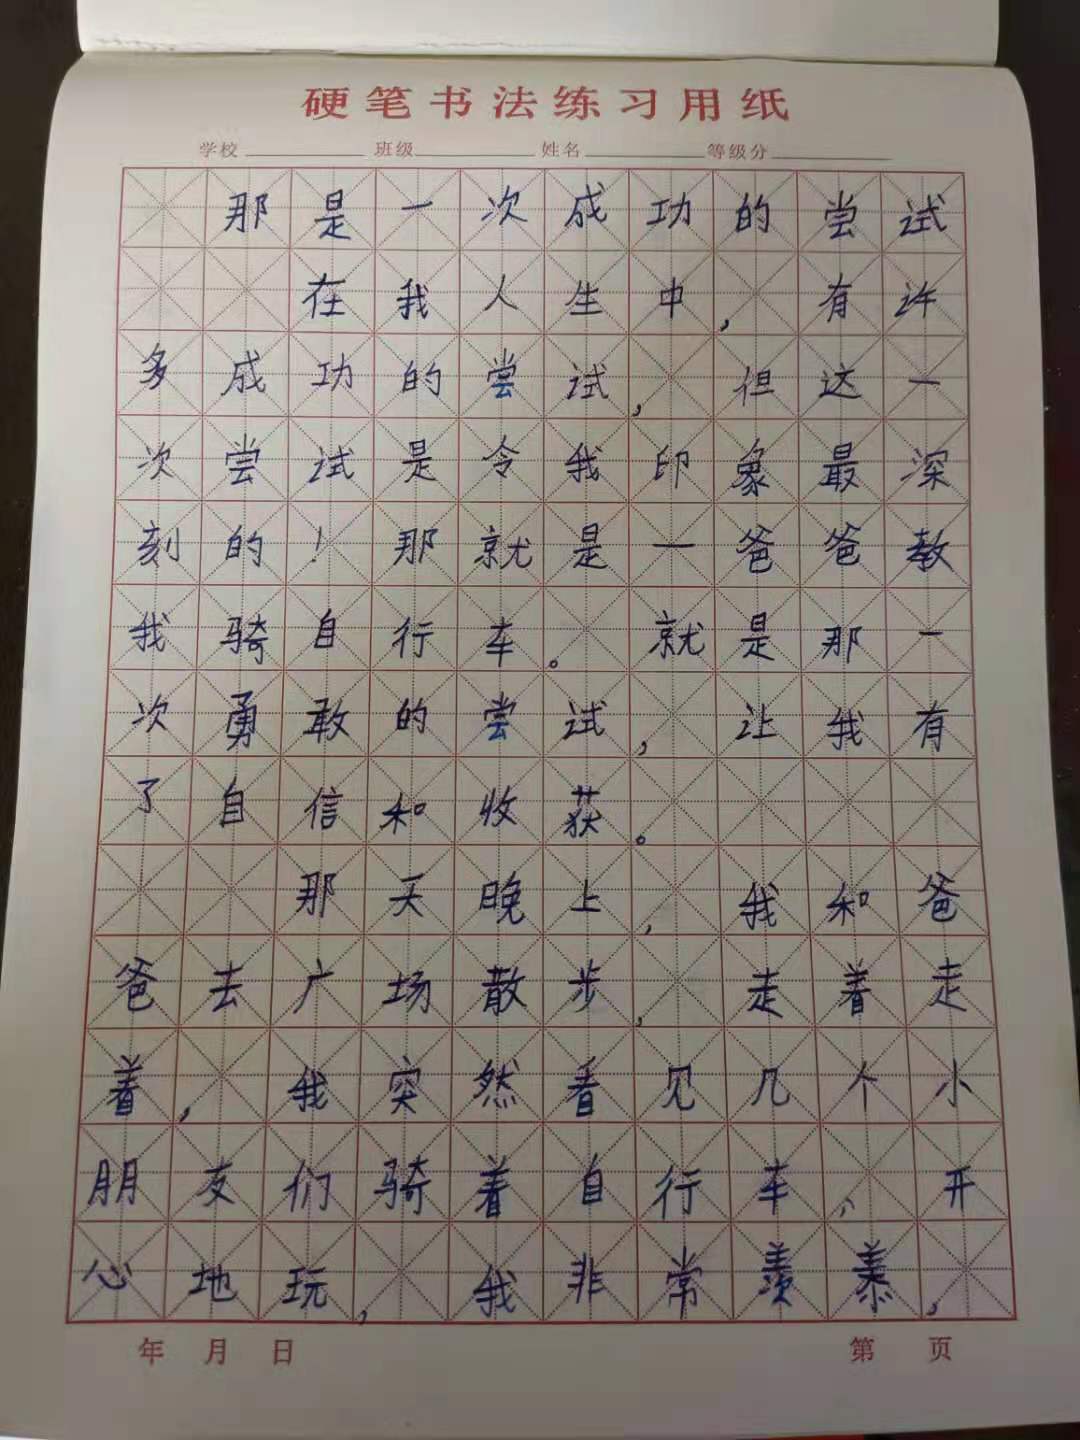 硬笔书法练习用纸
学校 班级 姓名 等级分
那是一次成功的尝试
在我人生中，有许
多成功的尝试，但这一
次尝试是令我印象最深
刻的！那就是一爸爸教
我骑自行车。就是那一
次勇敢的尝试，让我有
了自信和收获。
那天晚上，我和爸
爸去广场散步，走着走
着，我突然看见几个小
朋友们骑着自行车，开
心地玩，我非常羡慕，
年 月 日 第 页